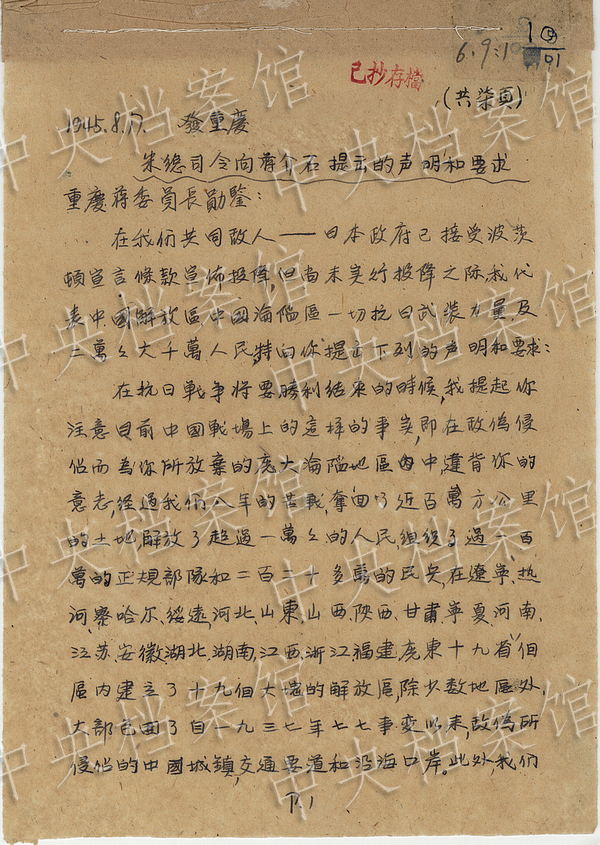 6.9:1
01
已抄存檔
(共柒頁)
1945.8.17. 發重慶
朱總司令向蔣介石提出的声明和要求
重慶蔣委員長勛鑒：
在我們共同敌人——日本政府已接受波茨
頓宣言條款宣佈投降，但尚未实行投降之际，我代
表中國解放區中國淪陷區一切抗日武装力量，及
二萬々六千萬人民，特向你提出下列的声明和要求：
在抗日戰争将要勝利结束的時候，我提起你
注意目前中國戰場上的這样的事实，即在敌偽侵
佔而為你所放棄的廣大淪陷地區中，違背你的
意志，经過我們八年的苦戰，奪回了近百萬方公里
的土地，解放了超過一萬々的人民，组织了過一百
萬的正規部隊和二百二十多萬的民兵，在遼寧、热
河、察哈尔、綏遠、河北、山東、山西、陝西、甘肅、寧夏、河南、
江苏、安徽、湖北、湖南、江西、浙江、福建、廣東十九省個
區内建立了十九個大塊的解放區，除少数地區外，
大部包囬了自一九三七年七七事変以來，敌偽所
侵佔的中國城鎮，交通要道和沿海口岸。此外，我們
P.1
中央档案馆